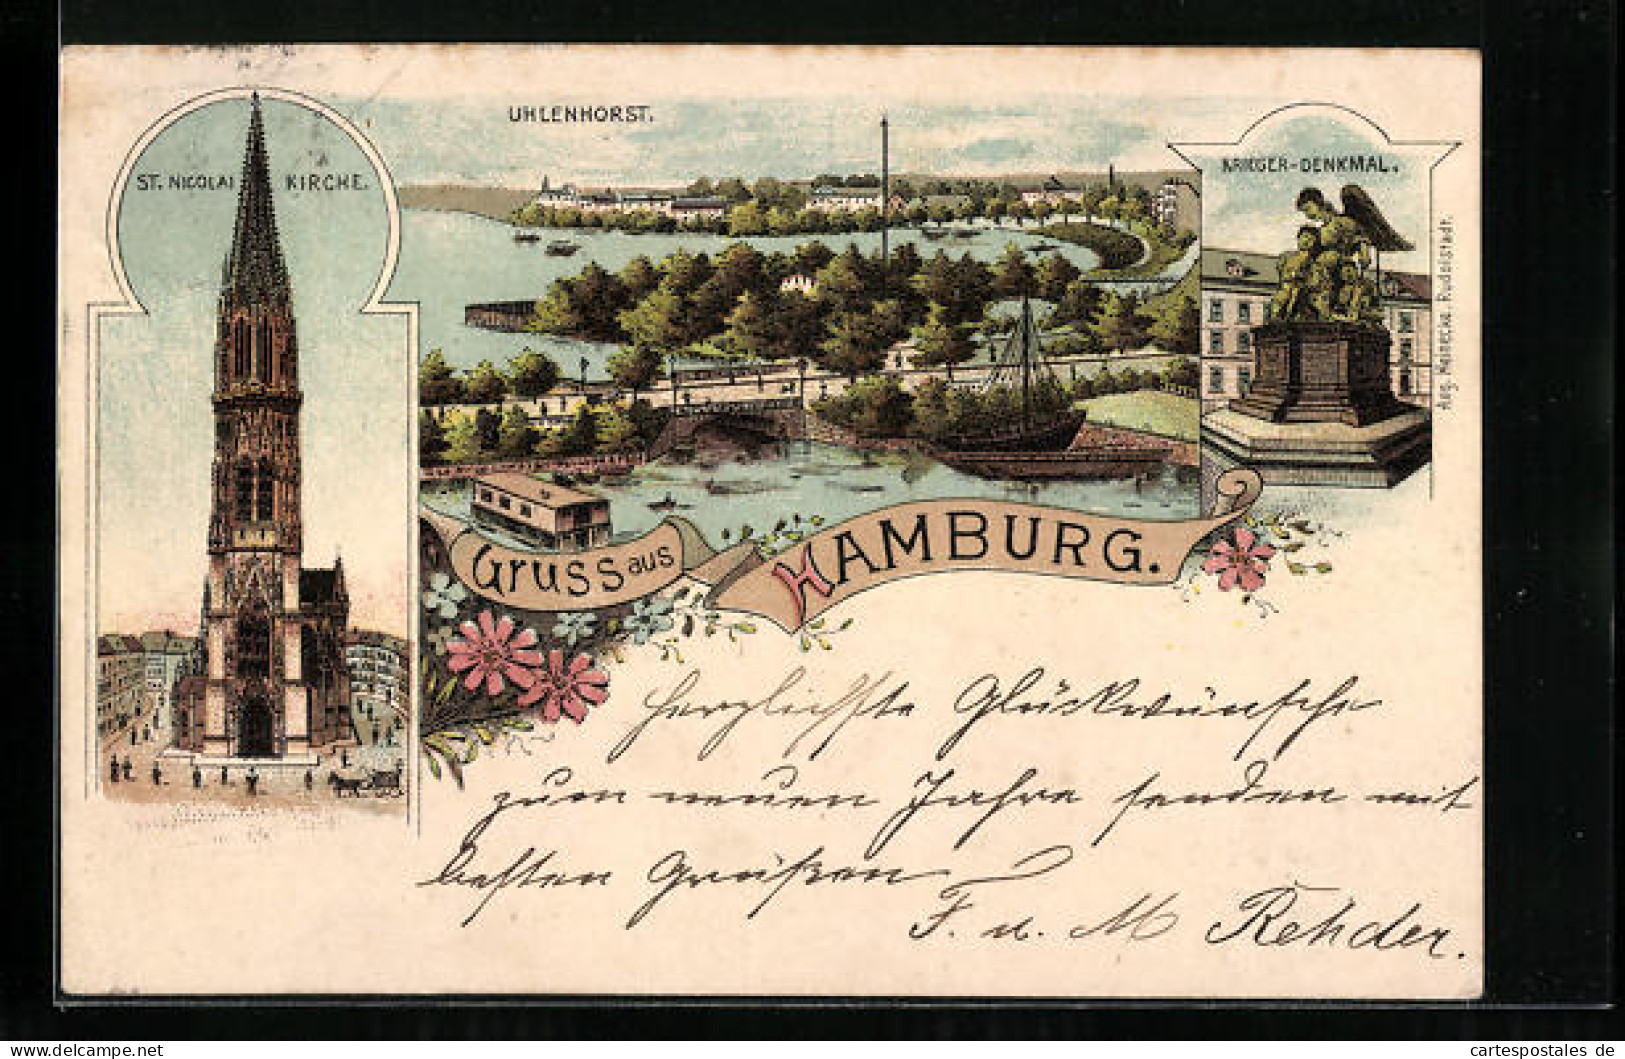 UHLENHORST.
ST. NICOLAI KIRCHE.
KRIEGER-DENKMAL.
Aug. Meinecke Rudolstadt.
Gruss aus HAMBURG.
Herzlichste Glückwünsche
zum neuen Jahre senden mit
besten Grüßen
F. u. M Rehder.
cartespostales de
www.cartespostales.eu